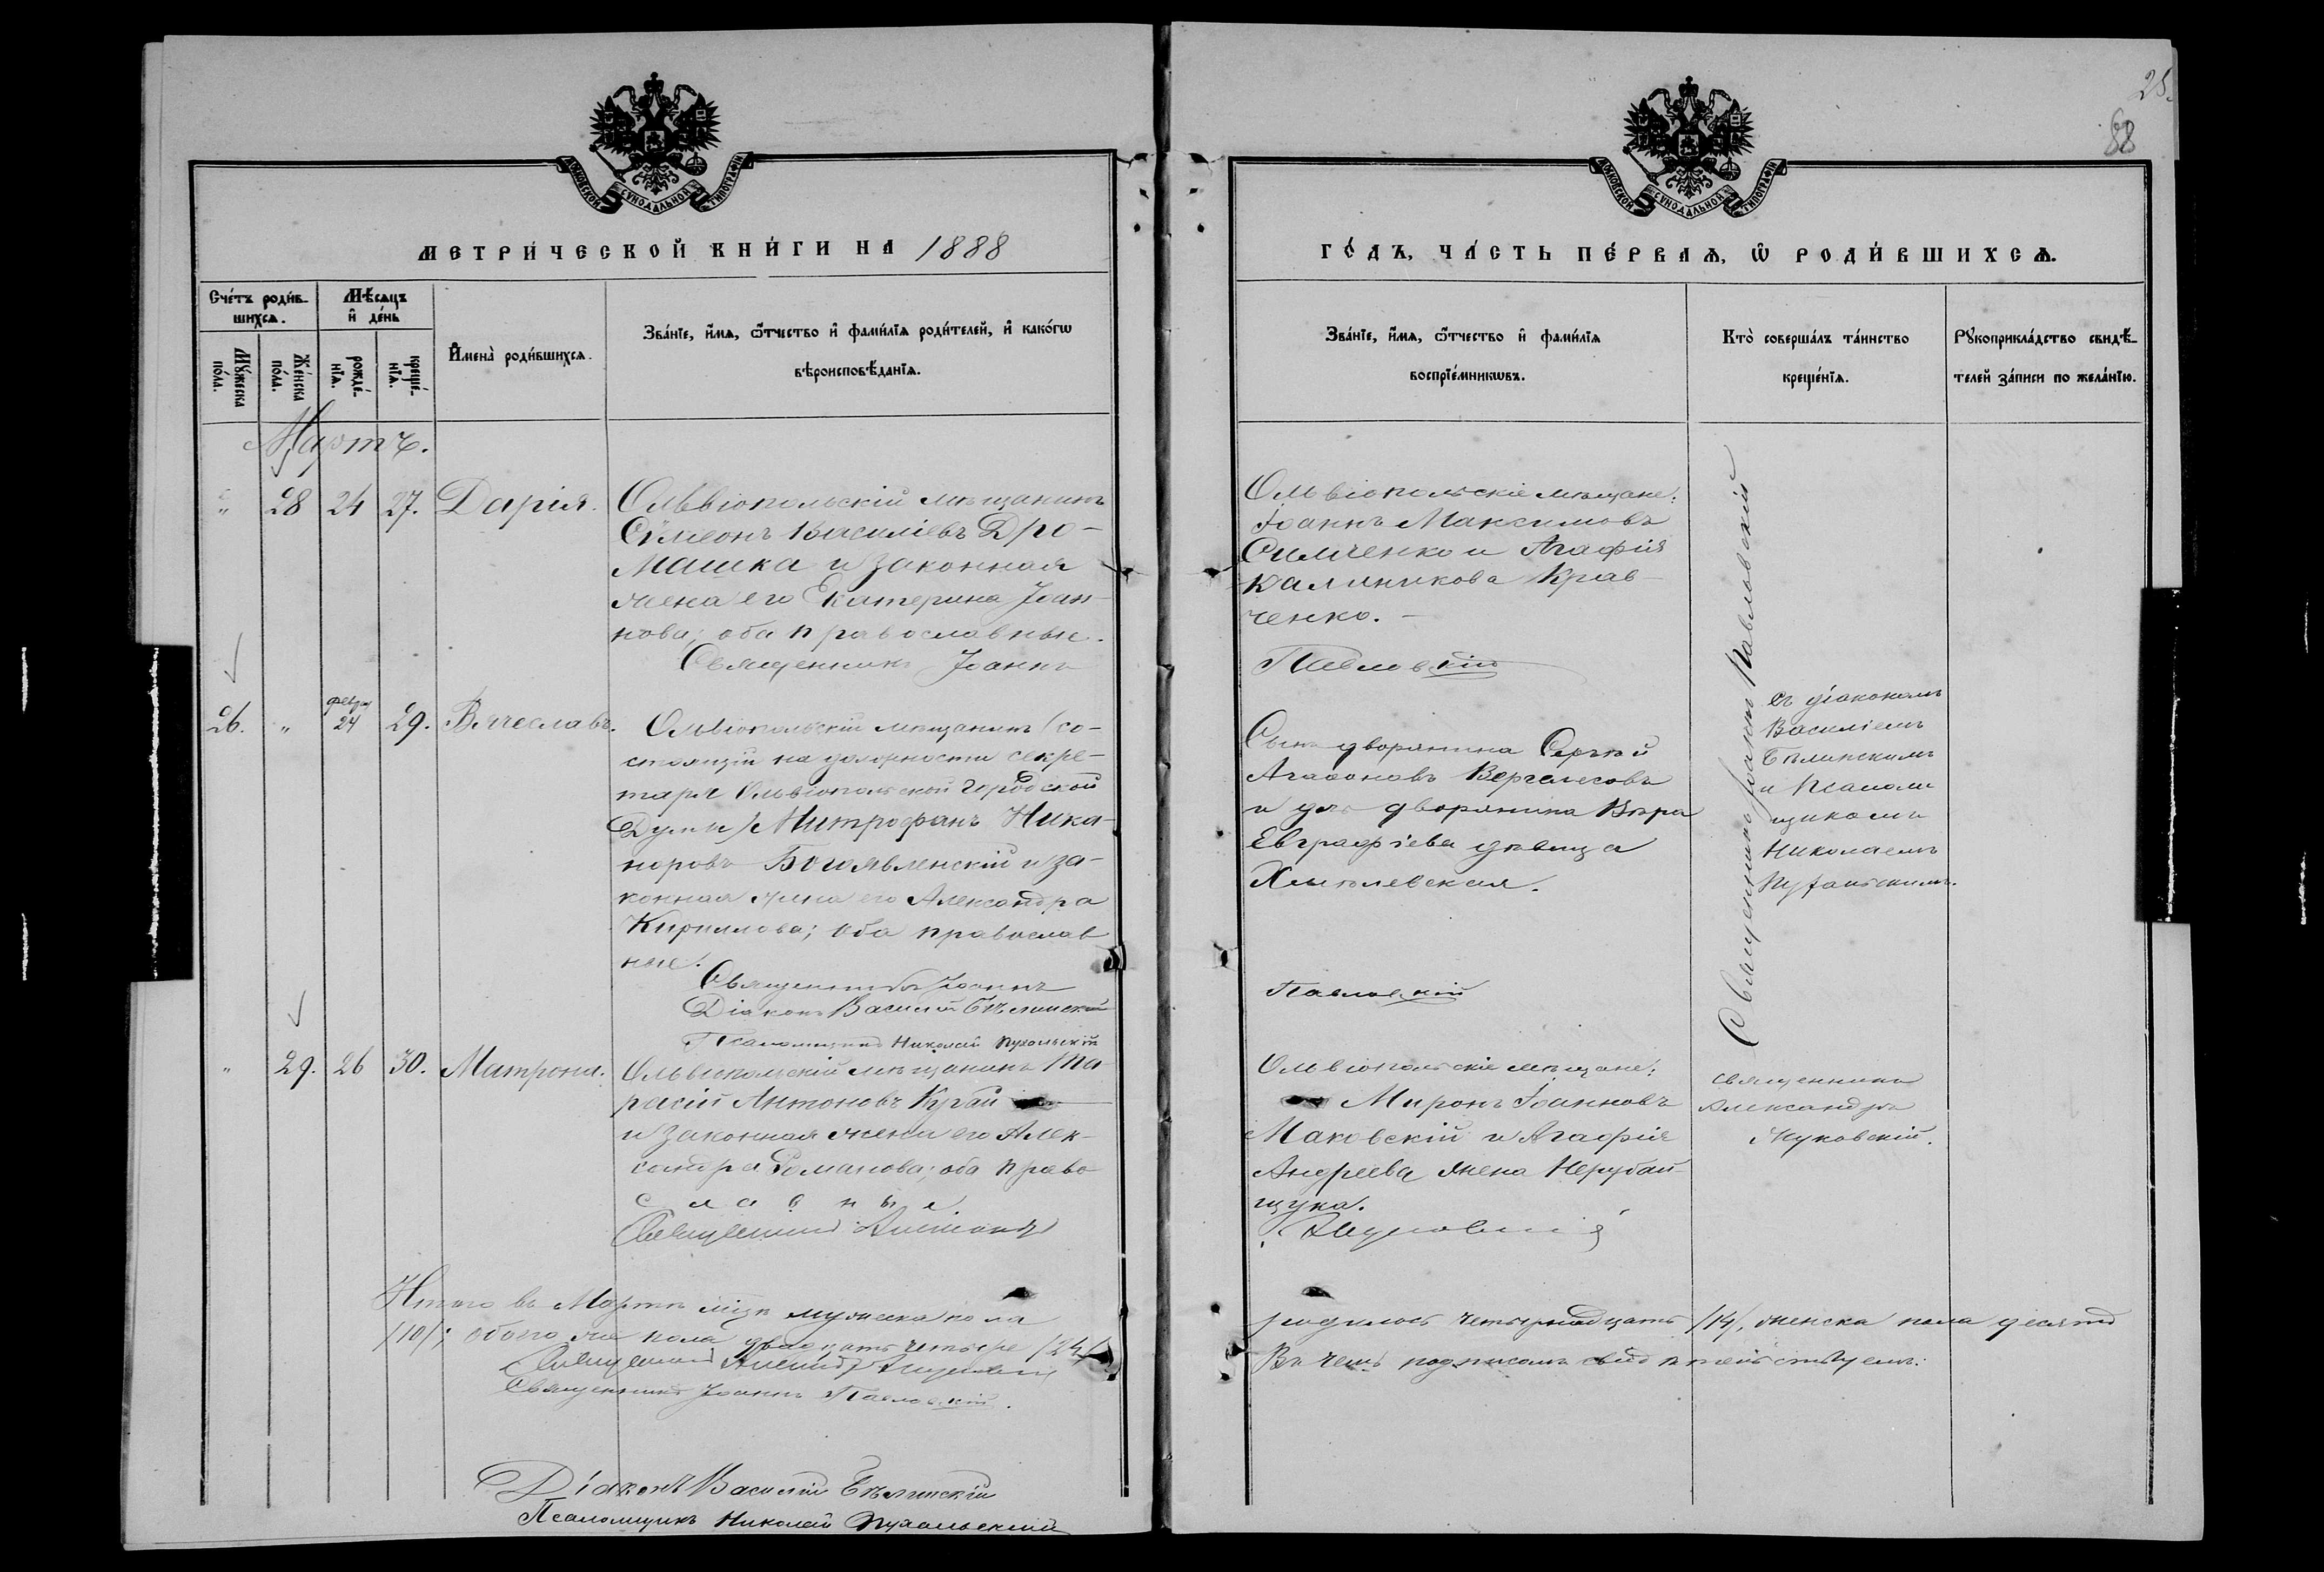 25.
88
МОСКОВСКОЙ СѴНОДАЛЬНОЙ ТИПОГРАФІИ
МЕТРИ́ЧЕСКОЙ КНИ́ГИ НА 1888
Сче́тъ роди́в-
шихсѧ.
Мѣ́сѧцъ
и҆ де́нь
Мꙋ́жеска
по́ла.
Же́нска
по́ла.
рожде́-
нїѧ.
креще́-
нїѧ.
И҆мена̀ роди́вшихсѧ.
Зва́нїе, и҆́мѧ, ѻ҆́тчество и҆ фами́лїѧ роди́телей, и҆ како́гѡ
вѣроисповѣ́данїѧ.
Мартъ.
" 28 24 27. Дарія.
Ольвіопольскій мѣщанинъ
Сѵмеонъ Василіевъ Дро-
машка и законная
жена его Екатерина Іоан-
нова; оба православные.
Священникъ Іоаннъ
26. " февр 24 29. Вячеславъ.
Ольвіопольскій мѣщанинъ (со-
стоящій на должности секре-
таря Ольвіопольской Городской
Думы) Митрофанъ Ника-
норовъ Богоявленскій и за-
конная жена его Александра
Кириллова; оба православ
ные.
Священникъ Іоаннъ
Діаконъ Василій Бѣлинскій
Псаломщикъ Николай Пухальскій
" 29. 26 30. Матрона.
Ольвіопольскій мѣщанинъ Та-
расій Антоновъ Кугай
и законная жена его Алек-
сандра Романова; оба право
славные.
Священникъ
Итого въ Мартѣ мцѣ мужеска пола
/10/; обоего же пола двадцать четыре /24/
Священникъ
Священникъ Іоаннъ Павловскій.
Діаконъ Василій Бѣлинскій
Псаломщикъ Николай Пухальскій
МОСКОВСКОЙ СѴНОДАЛЬНОЙ ТИПОГРАФІИ
ГО́ДЪ, ЧА́СТЬ ПЕ́РВАѦ, Ѡ҆ РОДИ́ВШИХСѦ.
Зва́нїе, и҆́мѧ, ѻ҆́тчество и҆ фами́лїѧ
воспрїе́мникѡвъ.
Кто̀ соверша́лъ та́инство
креще́нїѧ.
Рꙋкоприкла́дство свидѣ́-
телей за́писи по жела́нїю.
Ольвіопольскіе мѣщане:
Іоаннъ Максимовъ
Симченко и Агафія
Калиникова Крав-
ченко.
Павловскій
Сынъ дворянина Сергѣй
Агафоновъ Вергелесовъ
и дочь дворянина Вѣра
Евграфіева дѣвица
Хмѣлевская.
Павловскій
Священникъ Іоаннъ Павловскій
съ діакономъ
Василіемъ
Бѣлинскимъ
и Псалом
щикомъ
Николаемъ
Пухальскимъ.
Ольвіопольскіе мѣщане:
Миронъ Іоанновъ
Маковскій и Агафія
Андреева жена Нерубай-
щука.
священникъ
Александръ
родилось четырнадцать /14/, женска пола десять
Въ чемъ подписомъ свидѣтельствуемъ: